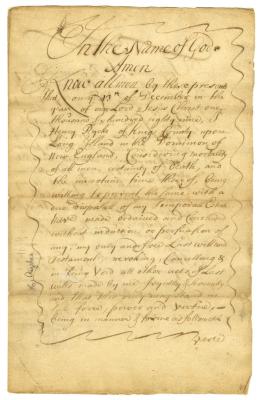 In the Name of God
Amen
Know all men by these presents
that on ye 13th of December in the
year of our Lord Jesus Christ one
thousand six hundred eighty nine, I
Henry of Kings County upon
Long Island in the Dominion of
New England, Considering mortality
of all men, certainty of Death, and
the incertaine time thereof, being
willing to prevent the same, with a
due disposal of my Temporal Estate
have made ordained and
without induction or perswasion of
any, my only and free Last will and
Testament, revoking Cancelling &
making Void all other acts, & Last
wills made by me
and that this only may stand in
force power and vertue,
being in manner & forme as followeth